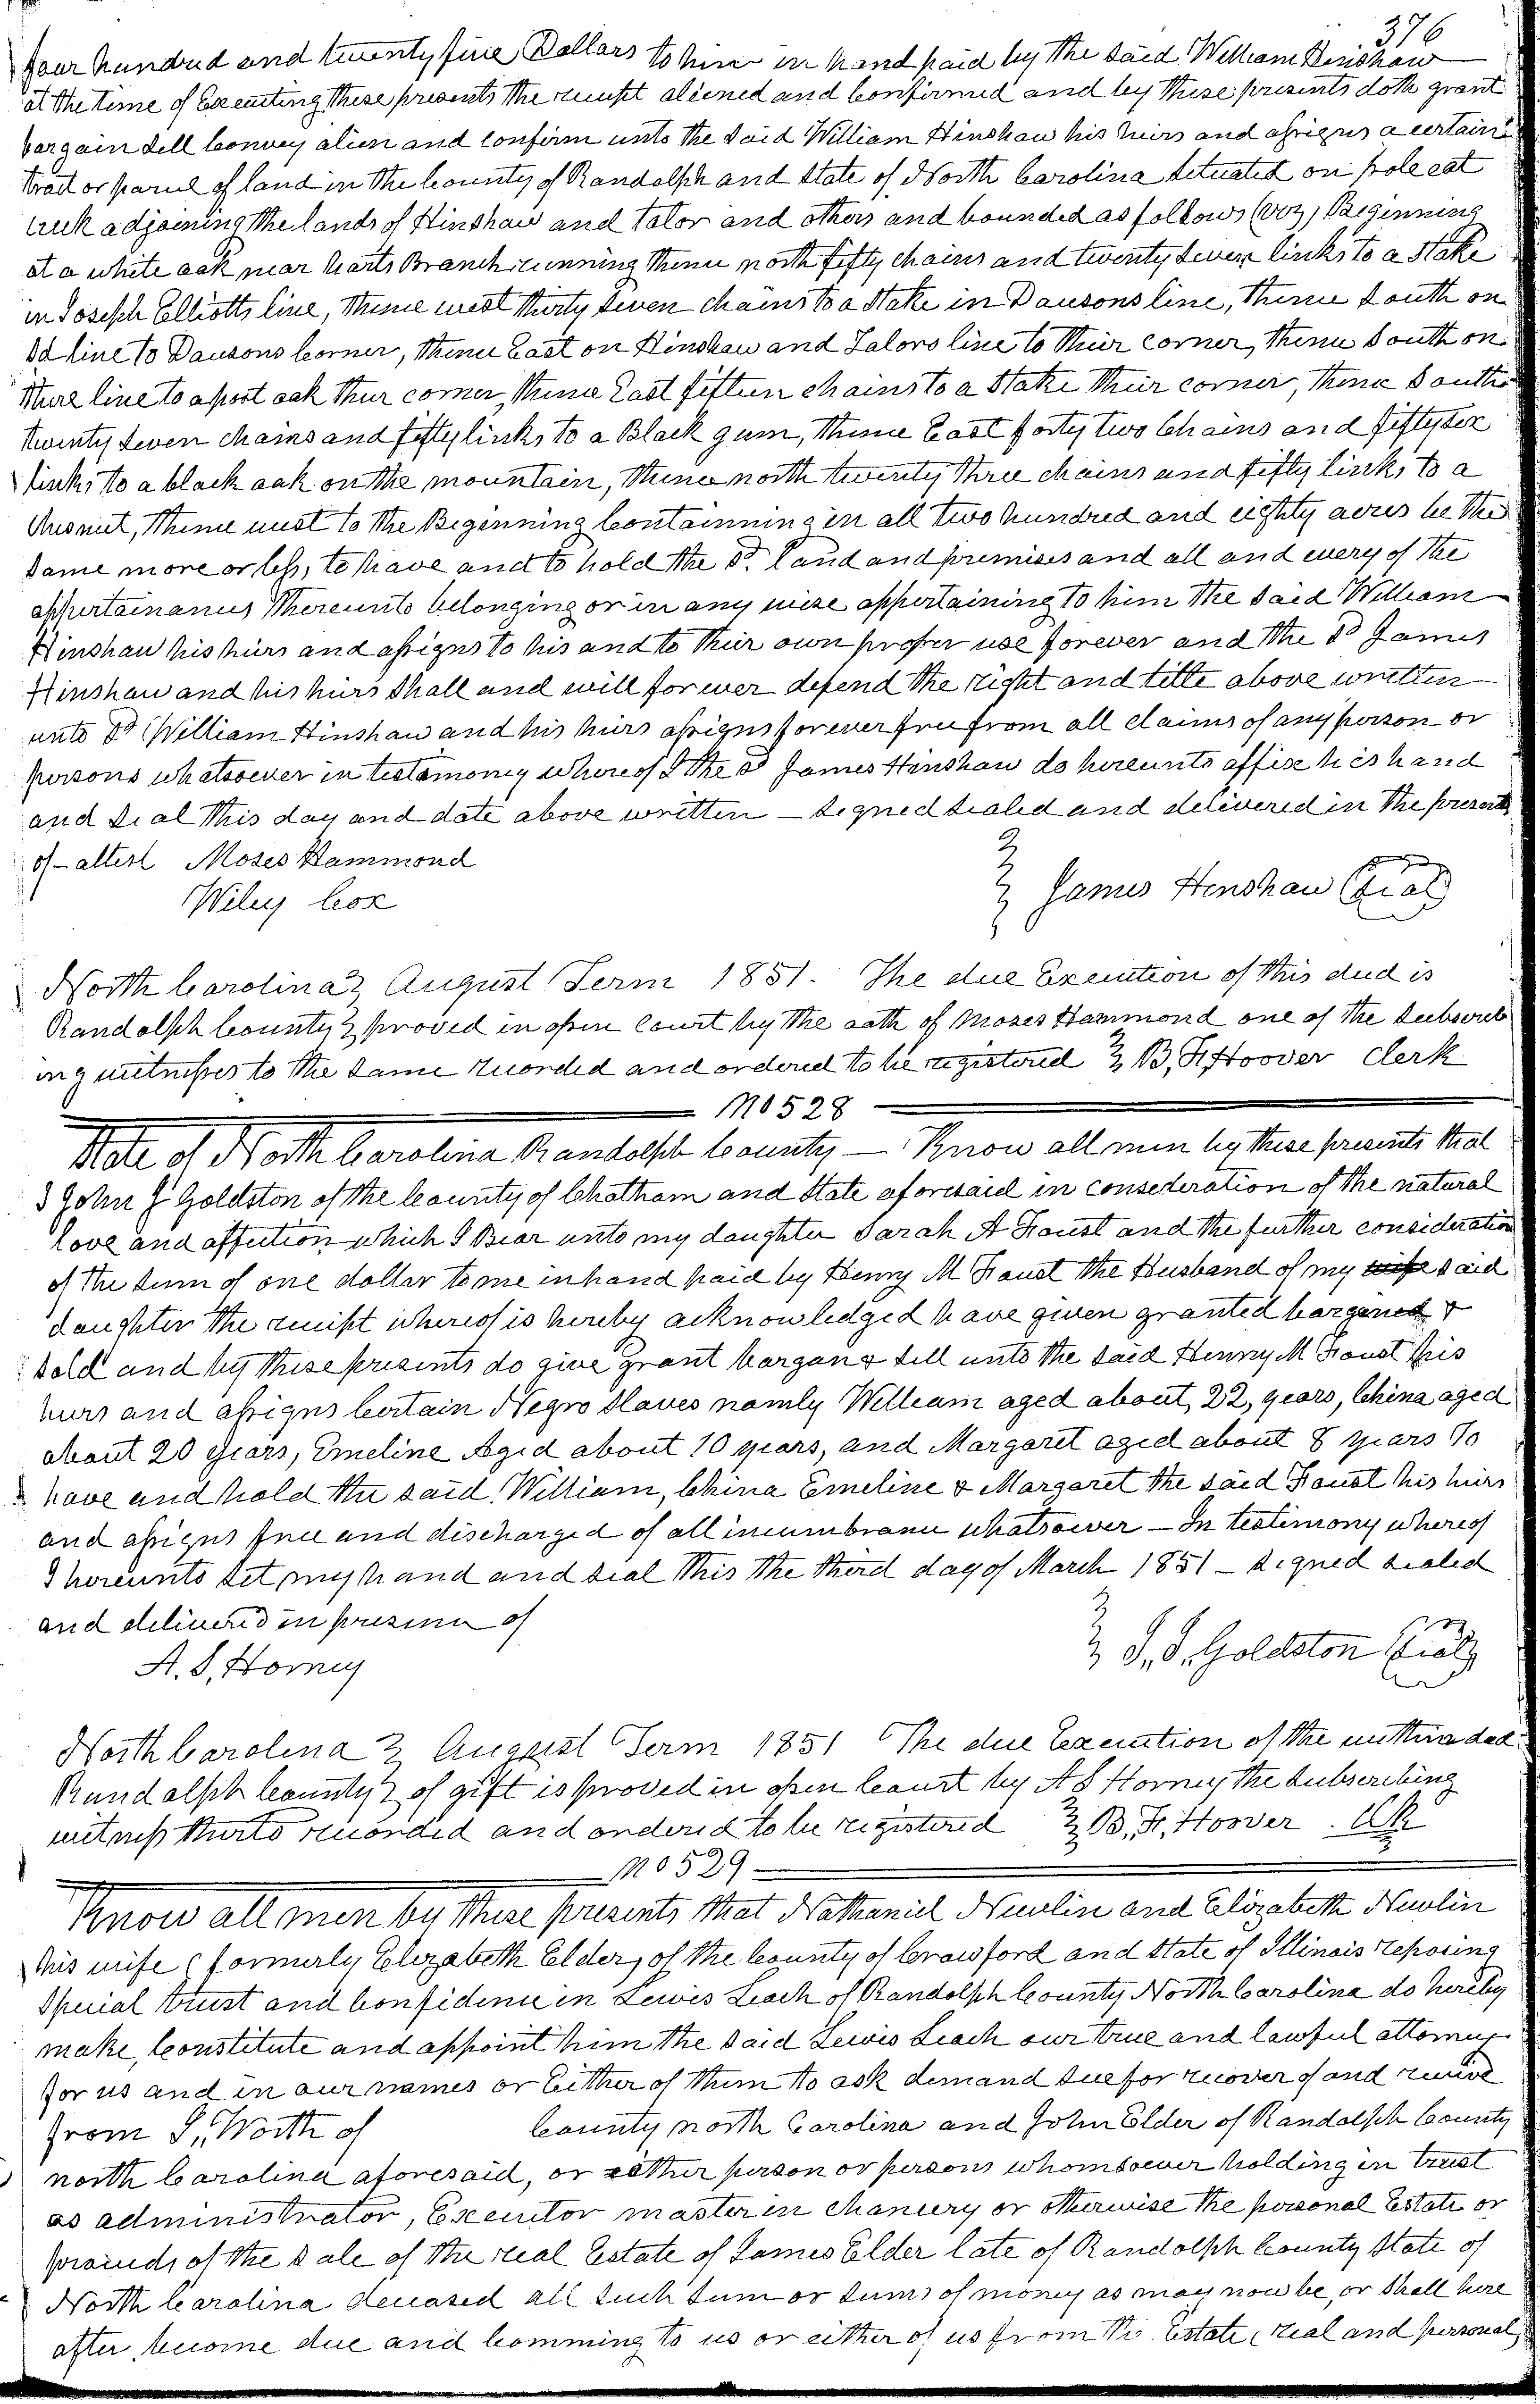 376
four hundred and twenty five Dollars to him in hand paid by the said William Hinshaw
at the time of Executing these presents the receipt aliened and Confirmed and by these presents doth grant
bargain sell Convey alien and confirm unto the said William Hinshaw his heirs and assigns a certain
tract or parcel of land in the County of Randolph and State of North Carolina situated on pole cat
creek adjoining the lands of Hinshaw and Talor and others and bounded as follows (viz) Beginning
at a white oak near harts Branch running thence north fifty chains and twenty seven links to a Stake
in Joseph Elliotts line, thence west thirty seven chains to a Stake in Dausons line, thence South on
sd line to Dausons Corner, thence East on Hinshaw and Talors line to their corner, thence South on
there line to a post oak thur corner, thence East fifteen chains to a Stake their corner, thence South
twenty seven chains and fifty links to a Black gum, thence East forty two Chains and fifty six
links to a black oak on the mountain, thence north twenty three chains and fifty links to a
Chesnut, thence west to the Beginning Containning in all two hundred and eighty acres be the
same more or less, to have and to hold the sd. land and premises and all and every of the
appertainances thereunto belonging or in any wize appertaining to him the said William
Hinshaw his heirs and assigns to his and to their own proper use forever and the sd James
Hinshaw and his heirs shall and will forever defend the right and title above written
unto sd William Hinshaw and his heirs assigns forever free from all claims of any person or
persons whatsoever in testamony whereof I the sd James Hinshaw do hereunto affix his hand
and seal this day and date above written – signed sealed and delivered in the presents
of – attest Moses Hammond
Wiley Cox
James Hinshaw (Seal)
North Carolina } August Term 1851. The due Execution of this deed is
Randolph County } proved in open Court by the oath of Moses Hammond one of the subscrib
ing witnesses to the same recorded and ordered to be registered } B, F, Hoover Clerk
No 528
State of North Carolina Randolph County – Know all men by these presents that
I John J Goldston of the County of Chatham and State aforesaid in consederation of the natural
love and affection which I Bear unto my daughter Sarah A Foust and the further consideration
of the sum of one dollar to me in hand paid by Henry M Foust the Husband of my wife said
daughter the receipt whereof is hereby acknowledged have given granted bargened &
sold and by these presents do give grant bargan & sell unto the said Henry M Foust his
heirs and assigns Certain Negro Slaves namly William aged about, 22, years, China aged
about 20 years, Emeline Aged about 10 years, and Margaret aged about 8 years To
have and hold the said, William, China Emeline & Margaret the said Foust his heirs
and assigns free and discharged of all incumbrance whatsoever – In testimony whereof
I hereunto set my hand and seal this the third day of March 1851 – signed sealed
and delivered in presence of
A. S, Horney
J, J, Goldston (Seal)
North Carolina } August Term 1851 The due Execution of the within deed
Randolph County } of gift is proved in open Court by A S Horney the subscribing
witness thereto recorded and ordered to be registered } B, F, Hoover. Clk
No 529
Know all men by these presents that Nathaniel Newlin and Elizabeth Newlin
his wife (formerly Elizabeth Elder, of the County of Crawford and State of Illinois reposing
Special trust and Confidence in Lewis Leach of Randolph County North Carolina do hereby
make, Constitute and appoint him the said Lewis Leach our true and lawful attorney
for us and in our names or Either of them to ask demand sue for recover of and receive
from J, Worth of County north Carolina and John Elder of Randolph County
north Carolina aforesaid, or either person or persons whomsoever holding in trust
as administrator, Executor master in Chancery or otherwise the personal Estate or
proceeds of the sale of the real Estate of James Elder late of Randolph County State of
North Carolina deceased all such sum or sums of money as may now be, or shall here
after, become due and Comming to us or either of us from the Estate (real and personal,